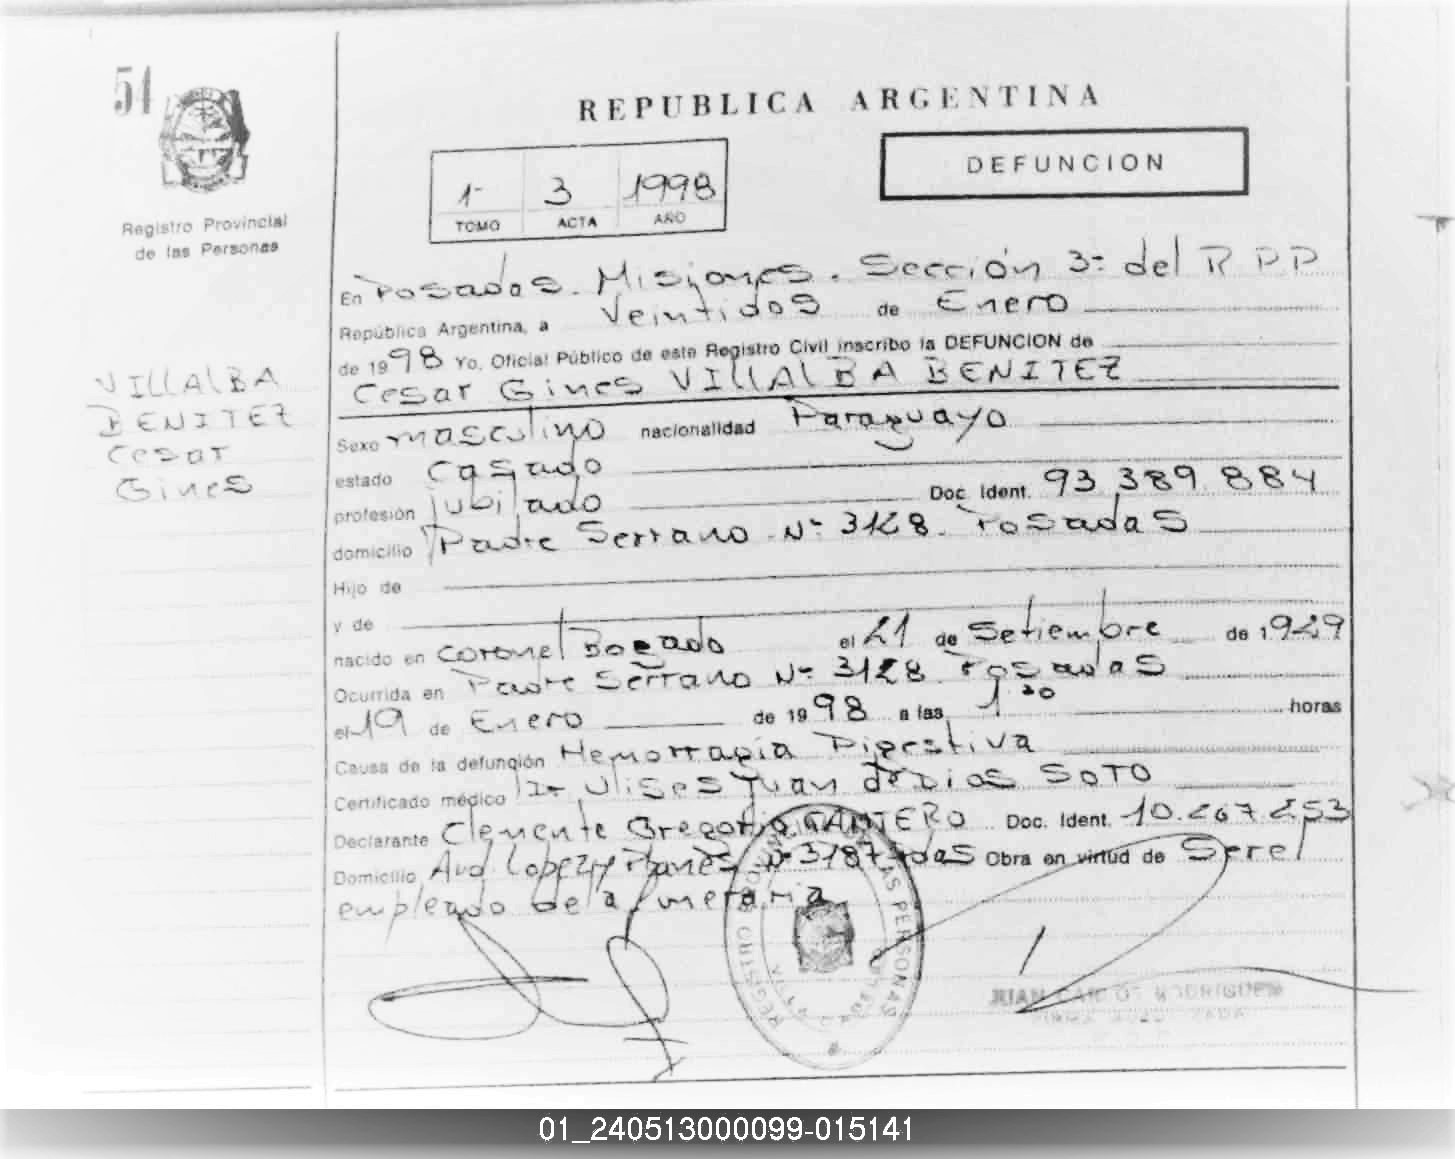 54
REPUBLICA ARGENTINA
DEFUNCION
1- 3 1998
TOMO ACTA AÑO
Registro Provincial
de las Personas
VILLALBA
BENITEZ
Cesar
Gines
En Posadas. Misiones. Sección 3ª del R P P
República Argentina, a Veintidos de Enero
de 1998 Yo, Oficial Público de este Registro Civil inscribo la DEFUNCION de
Cesar Gines VILLALBA BENITEZ
Sexo masculino nacionalidad Paraguayo
estado Casado
profesión jubilado Doc. Ident. 93.389.884
domicilio Padre Serrano Nº 3128. Posadas
Hijo de
y de
nacido en Coronel Bogado el 21 de Setiembre de 1.929
Ocurrida en Padre Serrano Nº 3128. Posadas
el 19 de Enero de 1998 a las 1 30 horas
Causa de la defunción Hemorragia Digestiva
Certificado médico Dr. Ulises Juan de Dios SOTO
Declarante Clemente Gregorio CANTERO Doc. Ident. 10.267.253
Domicilio Avd Lopez y Planes Nº 3187 Pdas Obra en virtud de Ser el
empleado de la funeraria
REGISTRO PERSONAS
JUAN CARLOS RODRIGUEZ
FIRMA AUTORIZADA
01_240513000099-015141